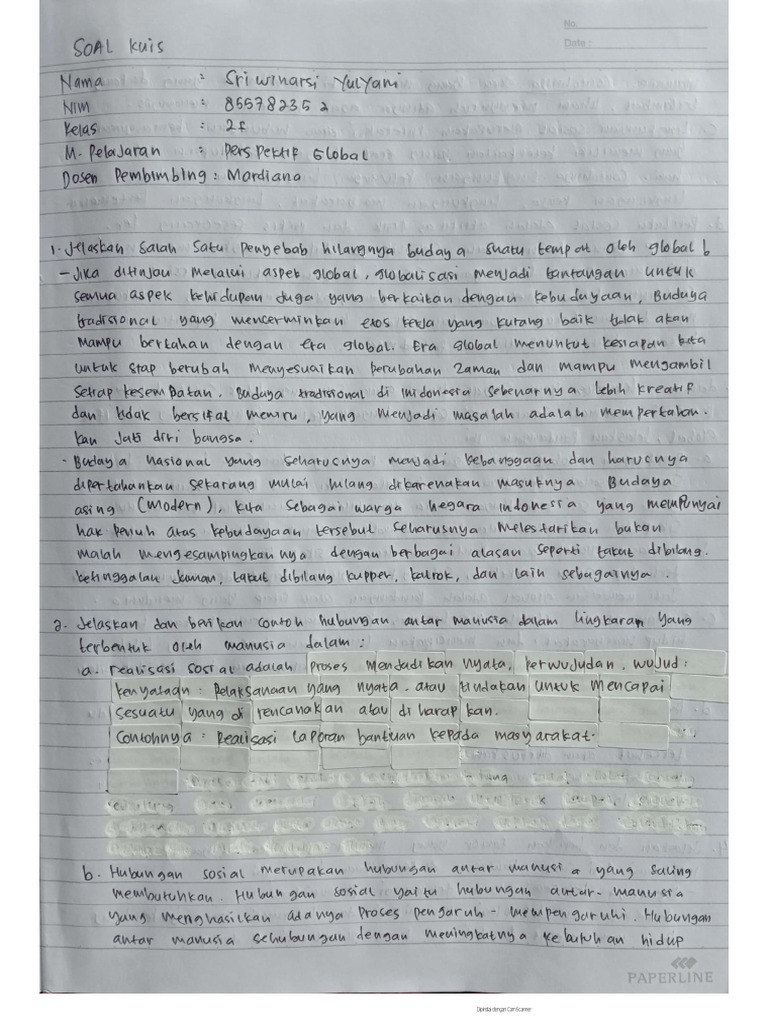 No.
Date :
SOAL Kuis
Nama : Sri Winarsi Yulyani
NIM : 855782352
Kelas : 2f
M. Pelajaran : Perspektif Global
Dosen Pembimbing : Mardiana
1. Jelaskan Salah Satu Penyebab hilangnya budaya suatu tempat oleh global b
- Jika ditinjau melalui aspek global, globalisasi menjadi tantangan untuk
semua aspek kehidupan juga yang berkaitan dengan kebudayaan, Budaya
tradisional yang mencerminkan etos kerja yang kurang baik tidak akan
mampu bertahan dengan era global. Era global menuntut kesiapan kita
untuk siap berubah menyesuaikan perubahan zaman dan mampu mengambil
setiap kesempatan. Budaya tradisional di indonesia sebenarnya lebih kreatif
dan tidak bersifat meniru, yang menjadi masalah adalah mempertahan-
kan Jati diri bangsa.
- Budaya nasional yang seharusnya menjadi kebanggaan dan harusnya
dipertahankan sekarang mulai hilang dikarenakan masuknya Budaya
asing (modern), kita sebagai warga negara indonesia yang mempunyai
hak penuh atas kebudayaan tersebut seharusnya melestarikan bukan
malah mengesampingkannya dengan berbagai alasan seperti takut dibilang.
ketinggalan Jaman, takut dibilang kupper, katrok, dan lain sebagainya.
2. Jelaskan dan berikan contoh hubungan antar manusia dalam lingkaran yang
terbentuk oleh manusia dalam :
a. realisasi sosial adalah proses menjadikan nyata, perwujudan, wujud,
kenyataan, Pelaksanaan yang nyata. atau tindakan untuk mencapai
sesuatu yang di rencanakan atau di harapkan.
Contohnya : Realisasi Laporan bantuan kepada masyarakat.
b. Hubungan sosial merupakan hubungan antar manusia yang saling
membutuhkan. Hubungan sosial yaitu hubungan antar-manusia
yang menghasilkan adanya Proses pengaruh - mempengaruhi. Hubungan
antar manusia sehubungan dengan meningkatnya kebutuhan hidup
PAPERLINE
Dipindai dengan CamScanner